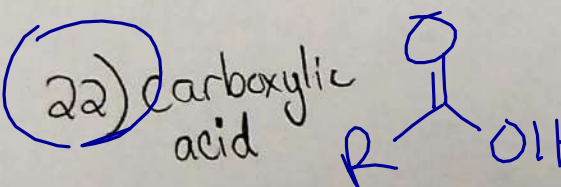 22) Carboxylic
acid
O
R OH